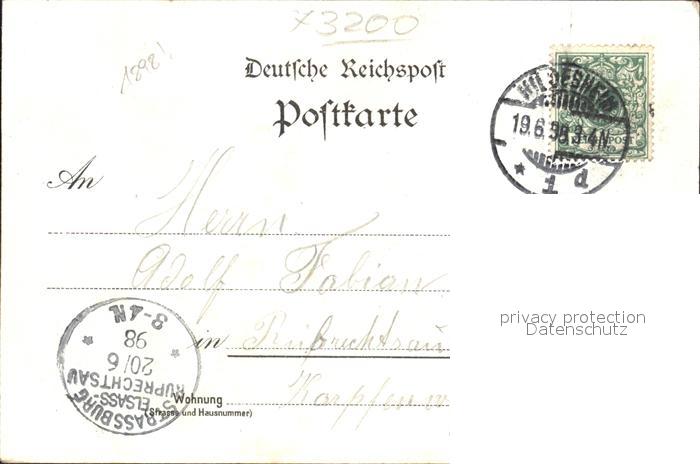 X3200
1898!
Deutsche Reichspost
Postkarte
HILDESHEIM
19.6.98.3-4N
* 1 d
REICHSPOST
An
Herrn
Adolf Fabian
privacy protection
Datenschutz
in Ruprechtsau
Wohnung
(Strasse und Hausnummer)
STRASSBURG
ELSASS-
RUPRECHTSAU
20/6
98
3-4N